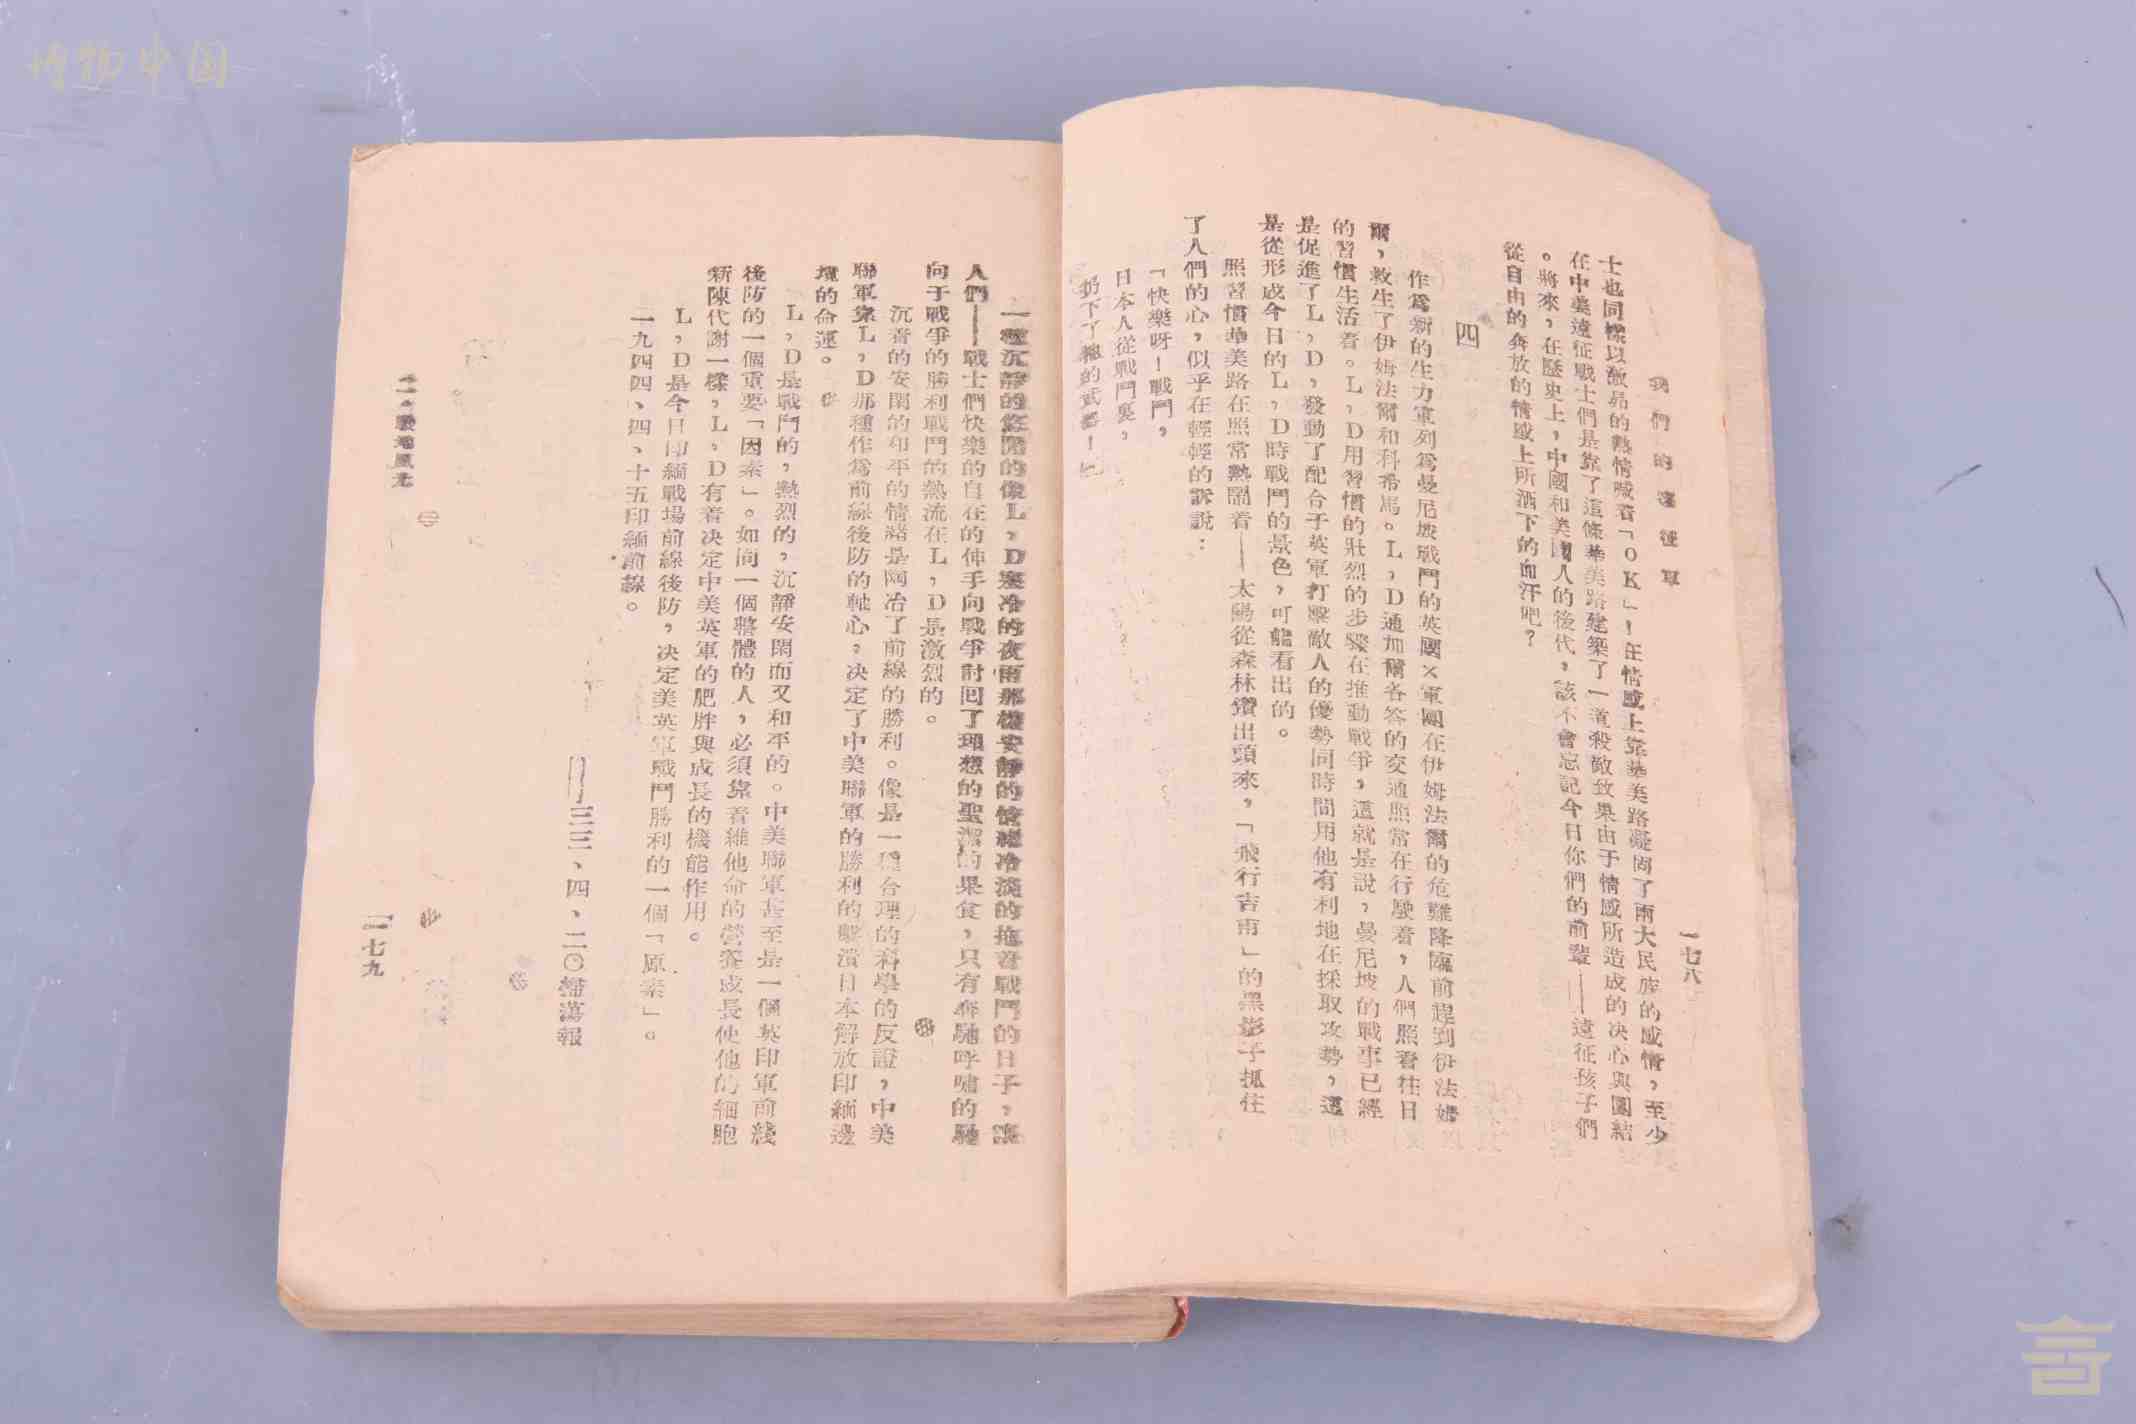 博物中国
我們的遠征軍
一七八
士也同樣以激昂的熱情喊着「OK」！在情感上靠華美路凝固了兩大民族的感情，至少
在中美遠征戰士們是靠了這條華美路建築了一道殺敵致果由于情感所造成的决心與團結
。將來，在歷史上，中國和美國人的後代，該不會忘記今日你們的前輩——遠征孩子們
從自由的奔放的情感上所洒下的血汗吧？
四
作爲新的生力軍列爲曼尼坡戰鬥的英國×軍團在伊姆法爾的危難降臨前趕到伊法姆
爾，救生了伊姆法爾和科希馬。L，D通加爾各答的交通照常在行駛着，人們照着往日
的習慣生活着。L，D用習慣的壯烈的步驟在推動戰爭，這就是說，曼尼坡的戰事已經
是促進了L，D，發動了配合于英軍打擊敵人的優勢同時間用他有利地在採取攻勢，還
是從形成今日的L，D時戰鬥的景色，可能看出的。
照習慣華美路在照常熱鬧着——太陽從森林鑽出頭來，「飛行吉甫」的黑影子抓住
了人們的心，似乎在輕輕的訴說：
「快樂呀！戰鬥，
日本人從戰鬥裏，
扔下了他的武器！」
一種沉靜的悠閒的像L，D寒冷的夜雨那樣安靜的情緒冷淡的拖着戰鬥的日子，讓
人們——戰士們快樂的自在的伸手向戰爭討回了理想的聖潔的果食，只有奔馳呼嘯的騷
向于戰爭的勝利戰鬥的熱流在L，D是激烈的。
沉着的安閑的和平的情緒是陶冶了前線的勝利。像是一種合理的科學的反證，中美
聯軍靠L，D那種作爲前線後防的軸心，决定了中美聯軍的勝利的擊潰日本解放印緬邊
境的命運。
L，D是戰鬥的，熱烈的，沉靜安閑而又和平的。中美聯軍甚至是一個英印軍前綫
後防的一個重要「因素」。如同一個整體的人，必須靠着維他命的營養成長使他的細胞
新陳代謝一樣，L，D有着决定中美英軍的肥胖與成長的機能作用。
L，D是今日印緬戰場前線後防，决定美英軍戰鬥勝利的一個「原素」。
一九四四、四、十五印緬前線。
——三三、四、二〇掃蕩報
二・戰地風光
一七九